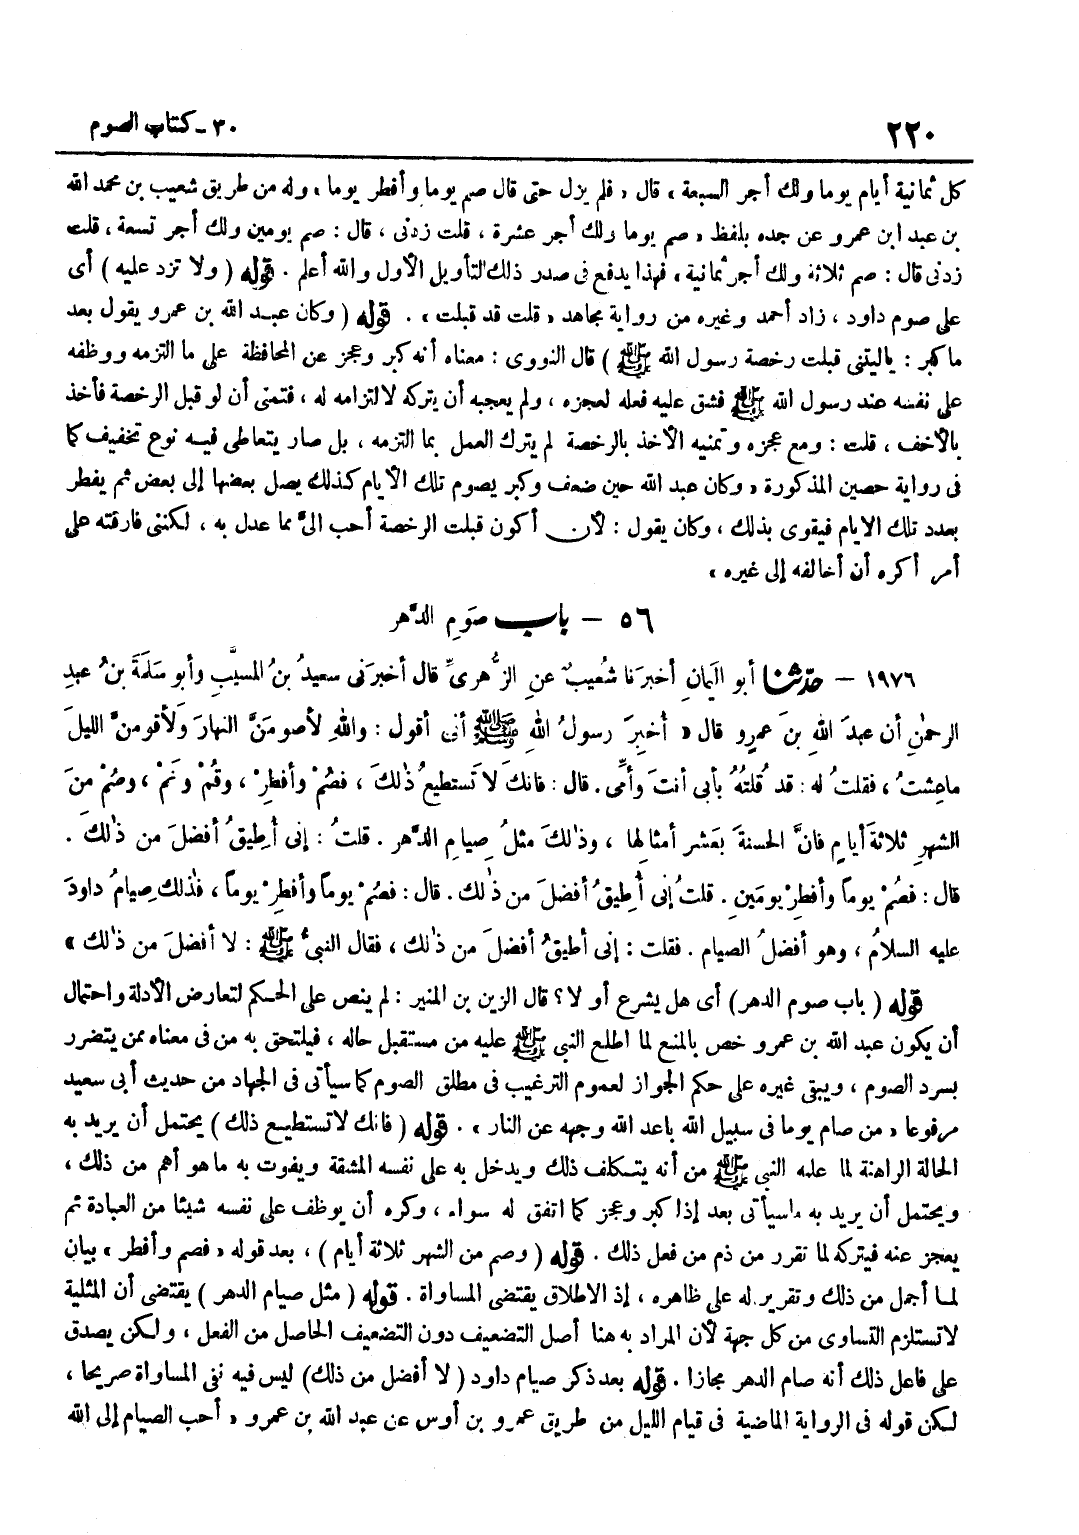 ٢٢٠
٣٠ - كتاب الصوم
كل ثمانية أيام يوما ولك أجر السبعة ، قال « فلم يزل حتى قال صم يوما وأفطر يوما ، وله من طريق شعيب بن محمد الله
بن عبد ابن عمرو عن جده بلفظ « صم يوما ولك أجر عشرة ، قلت زدنى ، قال : صم يومين ولك أجر تسعة ، قلت
زدنى قال : صم ثلاثة ولك أجر ثمانية ، فهذا يدفع فى صدر ذلك التأويل الأول والله أعلم . قوله ( ولا تزد عليه ) أى
على صوم داود ، زاد أحمد وغيره من رواية مجاهد « قلت قد قبلت » . قوله ( وكان عبد الله بن عمرو يقول بعد
ما كبر : ياليتنى قبلت رخصة رسول الله ﷺ ) قال النووى : معناه أنه كبر وعجز عن المحافظة على ما التزمه ووظفه
على نفسه عند رسول الله ﷺ فشق عليه فعله لعجزه ، ولم يعجبه أن يتركه لالتزامه له ، فتمنى أن لو قبل الرخصة فأخذ
بالأخف ، قلت : ومع عجزه وتمنيه الأخذ بالرخصة لم يترك العمل بما التزمه ، بل صار يتعاطى فيه نوع تخفيف كما
فى رواية حصين المذكورة « وكان عبد الله حين ضعف وكبر يصوم تلك الأيام كذلك يصل بعضها إلى بعض ثم يفطر
بعدد تلك الايام فيقوى بذلك ، وكان يقول : لأن أكون قبلت الرخصة أحب الىَّ مما عدل به ، لكننى فارقته على
أمر أكره أن أخالفه إلى غيره »
٥٦ - باب صَومِ الدَّهر
١٩٧٦ - حدّثنا أبو اليَمانِ أخبرَنا شُعيبٌ عنِ الزُّهرىِّ قال أخبرَنى سعيدُ بنُ المسيَّبِ وأبو سلمةَ بنُ عبدِ
الرحمٰنِ أن عبدَ اللهِ بنَ عمرٍو قال « أُخبِرَ رسولُ اللهِ ﷺ أنى أقول : واللهِ لأصومَنَّ النهارَ ولَأقومنَّ الليلَ
ماعِشتُ ، فقلتُ له : قد قُلتُهُ بأبى أنتَ وأمِّى. قال : فانكَ لا تَستطيعُ ذٰلكَ ، فصُمْ وأفطِرْ ، وقُمْ ونَمْ ، وصُمْ منَ
الشهرِ ثلاثةَ أيامٍ فانَّ الحسنةَ بعَشرِ أمثالِها ، وذٰلكَ مثلُ صِيامِ الدَّهر . قلتُ : إنى أُطِيقُ أفضلَ من ذٰلكَ .
قال : فصُمْ يوماً وأفطِرْ يومَينِ . قلتُ إنى أُطِيقُ أفضلَ من ذٰلك. قال : فصُمْ يوماً وأفطِرْ يوماً ، فذٰلك صِيامُ داودَ
عليه السلامُ ، وهو أفضلُ الصيام . فقلت : إنى أطيقُ أفضلَ من ذٰلك ، فقال النبىُّ ﷺ : لا أفضلَ من ذٰلك »
قوله ( باب صوم الدهر) أى هل يشرع أو لا ؟ قال الزين بن المنير : لم ينص على الحكم لتعارض الأدلة واحتمال
أن يكون عبد الله بن عمرو خص بالمنع لما اطلع النبى ﷺ عليه من مستقبل حاله ، فيلتحق به من فى معناه ممن يتضرر
بسرد الصوم ، ويبقى غيره على حكم الجواز لعموم الترغيب فى مطلق الصوم كما سيأتى فى الجهاد من حديث أبى سعيد
مرفوعا « من صام يوما فى سبيل الله باعد الله وجهه عن النار » . قوله ( فانك لاتستطيع ذلك ) يحتمل أن يريد به
الحالة الراهنة لما علمه النبى ﷺ من أنه يتكلف ذلك ويدخل به على نفسه المشقة ويفوت به ما هو أهم من ذلك ،
ويحتمل أن يريد به ماسيأتى بعد إذا كبر وعجز كما اتفق له سواء ، وكره أن يوظف على نفسه شيئا من العبادة ثم
يعجز عنه فيتركه لما تقرر من ذم من فعل ذلك . قوله ( وصم من الشهر ثلاثة أيام ) ، بعد قوله « فصم وأفطر » بيان
لما أجمل من ذلك وتقرير له على ظاهره ، إذ الاطلاق يقتضى المساواة . قوله ( مثل صيام الدهر ) يقتضى أن المثلية
لاتستلزم التساوى من كل جهة لأن المراد به هنا أصل التضعيف دون التضعيف الحاصل من الفعل ، ولكن يصدق
على فاعل ذلك أنه صام الدهر مجازا . قوله بعد ذكر صيام داود ( لا أفضل من ذلك) ليس فيه نفى المساواة صريحا ،
لكن قوله فى الرواية الماضية فى قيام الليل من طريق عمرو بن أوس عن عبد الله بن عمرو « أحب الصيام إلى الله